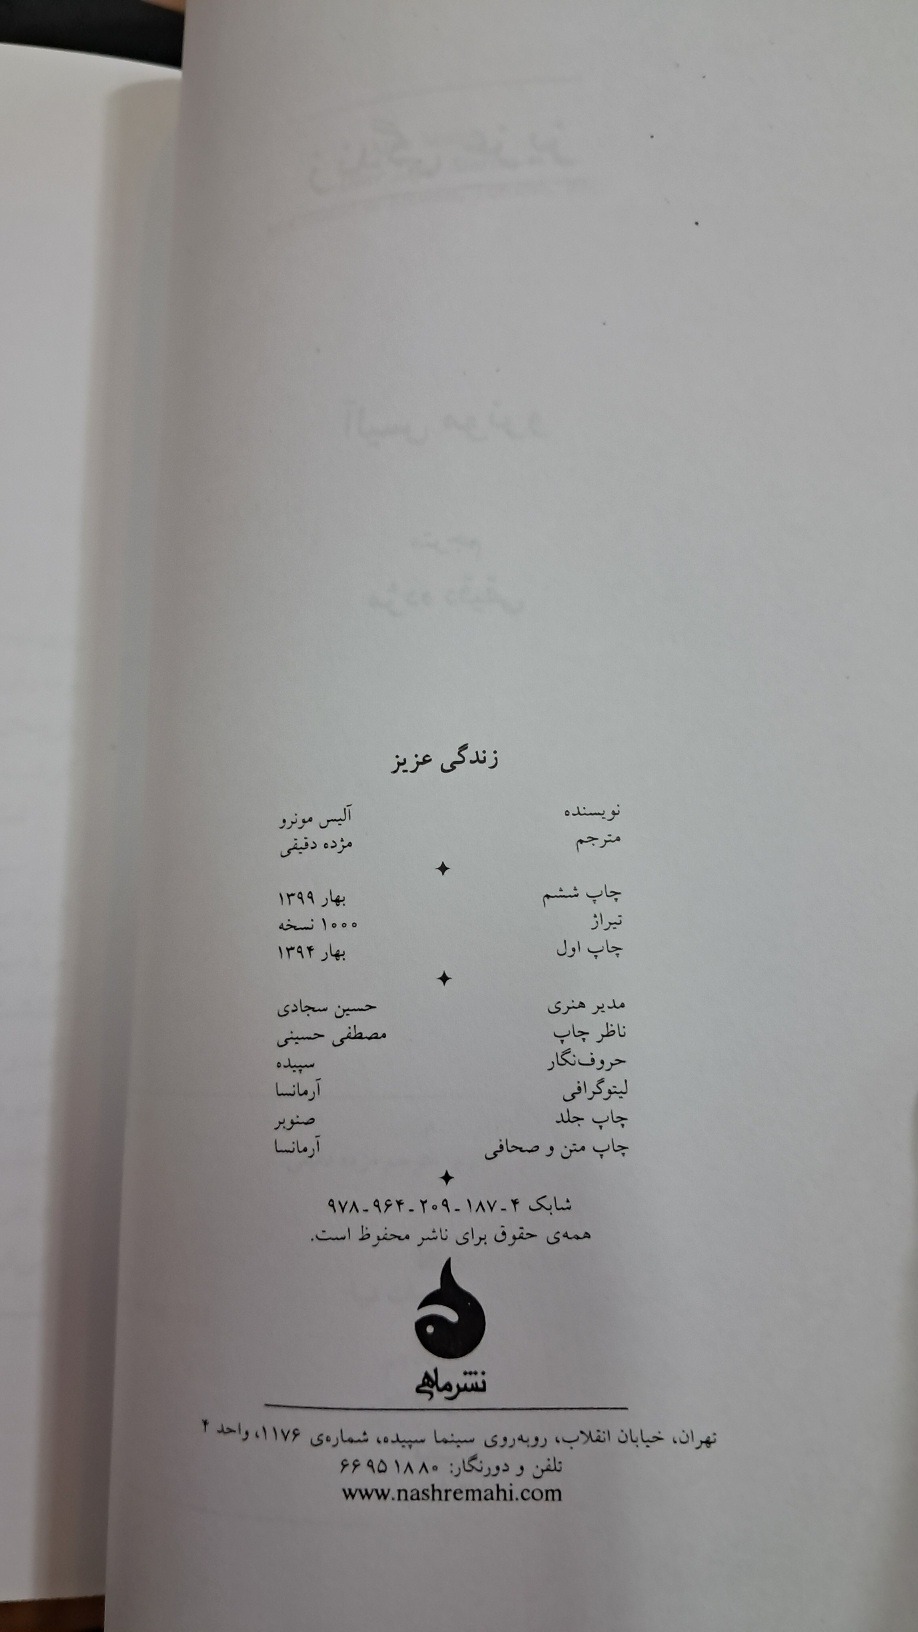 زندگی عزیز
نویسنده آلیس مونرو
مترجم مژده دقیقی
چاپ ششم بهار ۱۳۹۹
تیراژ ۱۰۰۰ نسخه
چاپ اول بهار ۱۳۹۴
مدیر هنری حسین سجادی
ناظر چاپ مصطفی حسینی
حروف‌نگار سپیده
لیتوگرافی آرمانسا
چاپ جلد صنوبر
چاپ متن و صحافی آرمانسا
شابک ۴-۱۸۷-۲۰۹-۹۶۴-۹۷۸
همه‌ی حقوق برای ناشر محفوظ است.
نشر ماهی
تهران، خیابان انقلاب، روبه‌روی سینما سپیده، شماره‌ی ۱۱۷۶، واحد ۴
تلفن و دورنگار: ۶۶۹۵۱۸۸۰
www.nashremahi.com